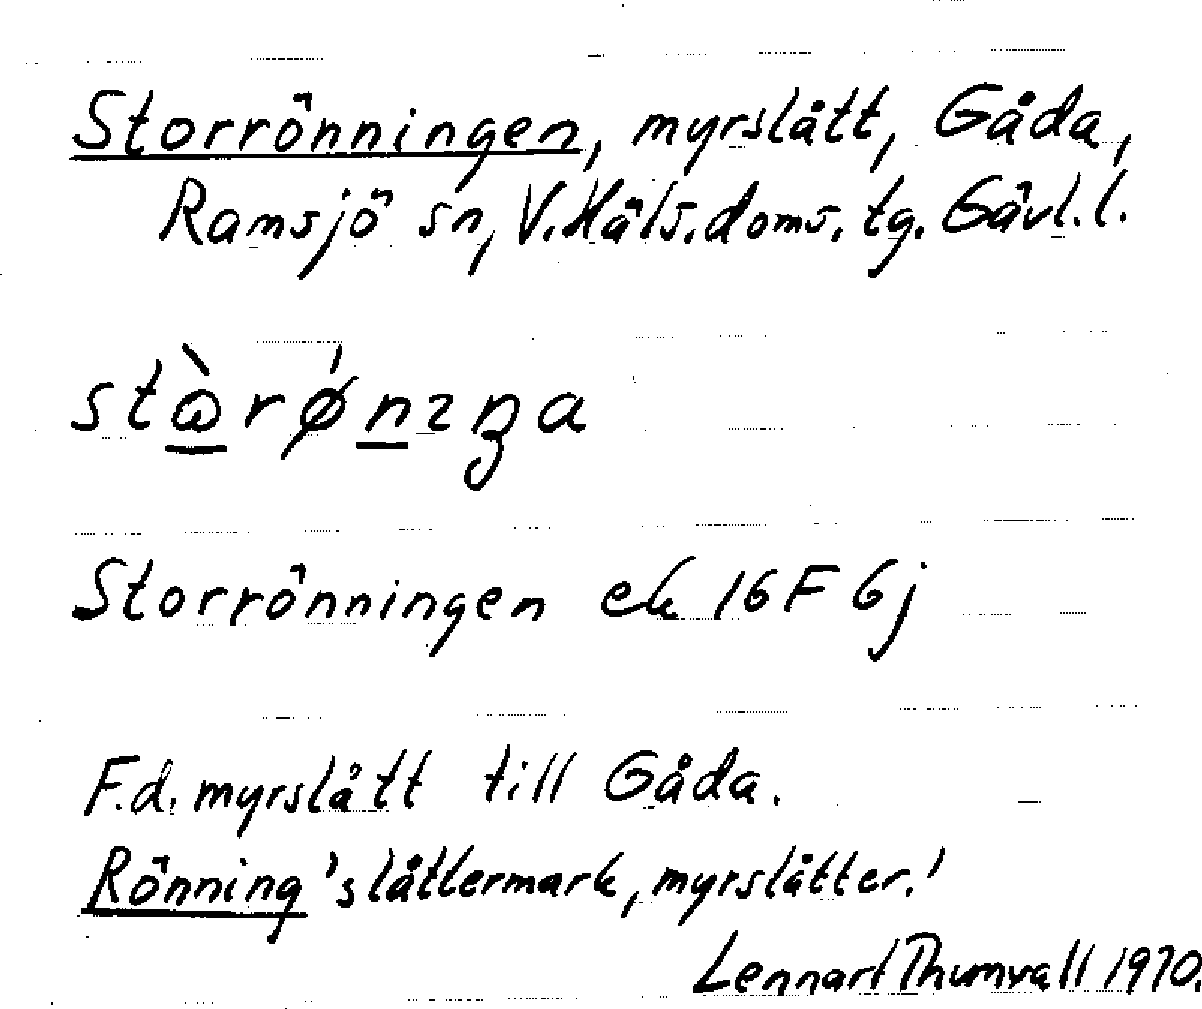 Storrönningen, myrslått, Gåda,
Ramsjö sn, V. Häls. doms. tg. Gävl. l.
Storrönningen ek 16 F 6j
F.d. myrslått till Gåda.
Rönning 'slåttermark, myrslåtter.'
Lennart Thumvall 1970.